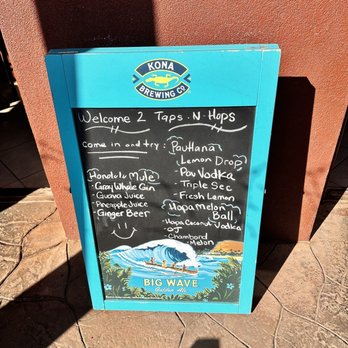 KONA
BREWING CO
Welcome 2 Taps-N-Hops
Come in and try:
PauHana
Lemon Drop
- Pau Vodka
- Triple Sec
- Fresh Lemon
Honolulu Mule
- Gray Whale Gin
- Guava Juice
- Pineapple Juice
- Ginger Beer
Hapa melon
Ball
- Hapa Coconut Vodka
- OJ
- Chambord
- Melon
BIG WAVE
Golden Ale